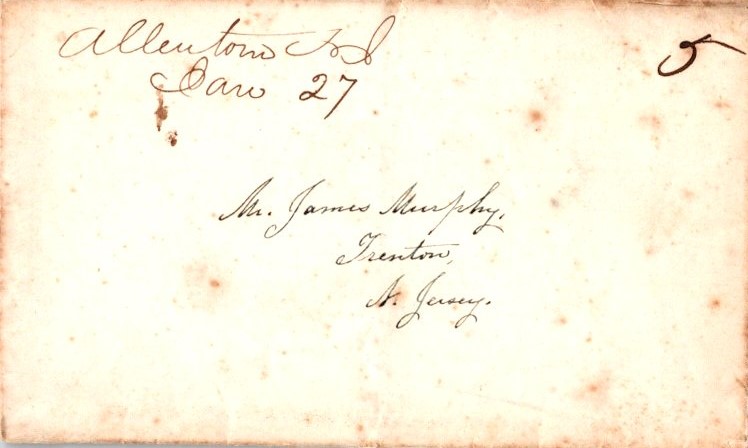 Allentown NJ
Jan 27
5
Mr. James Murphy,
Trenton,
N. Jersey.